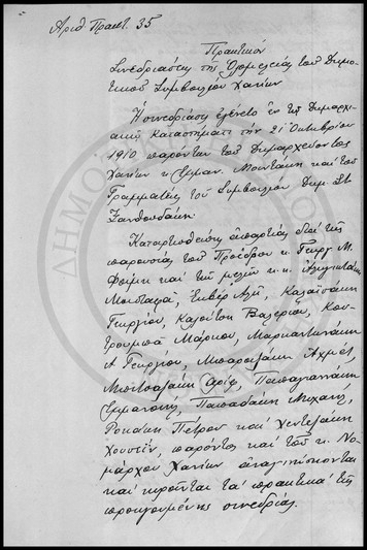 Αριθ. Πρακτ. 35
Πρακτικόν
Συνεδριάσεως της Ολομελείας του Δημο-
τικού Συμβουλίου Χανίων
Η συνεδρίασις εγένετο εν τω Δημαρχι-
ακώ Καταστήματι την 21 Οκτωβρίου
1910 παρόντων του Δημαρχεύοντος
Χανίων κ. Εμμαν. Μουντάκη και του
Γραμματέως του Συμβουλίου Δημ. Στ.
Ξανθουδάκη.
Καταρτισθείσης απαρτίας διά της
παρουσίας του Προέδρου κ. Γεωρ. Μ.
και των μελών κ.κ.
Μουσταφά, Ενβέρ Αλή, Καλαϊσάκη
Γεωργίου, Καλούτση Βαλερίου, Κου-
τρουμπά Μάρκου, Μαρκαντωνάκη
Α Γεωργίου, Αχμέτ,
Αρίφ, Παπαγιαννάκη
Εμμανουήλ, Παπαδάκη Μιχαήλ,
Πέτρου και
Χουσεΐν, παρόντος και του κ. Νο-
μάρχου Χανίων αναγινώσκονται
και κυρούνται τα πρακτικά της
προηγουμένης συνεδρίας.